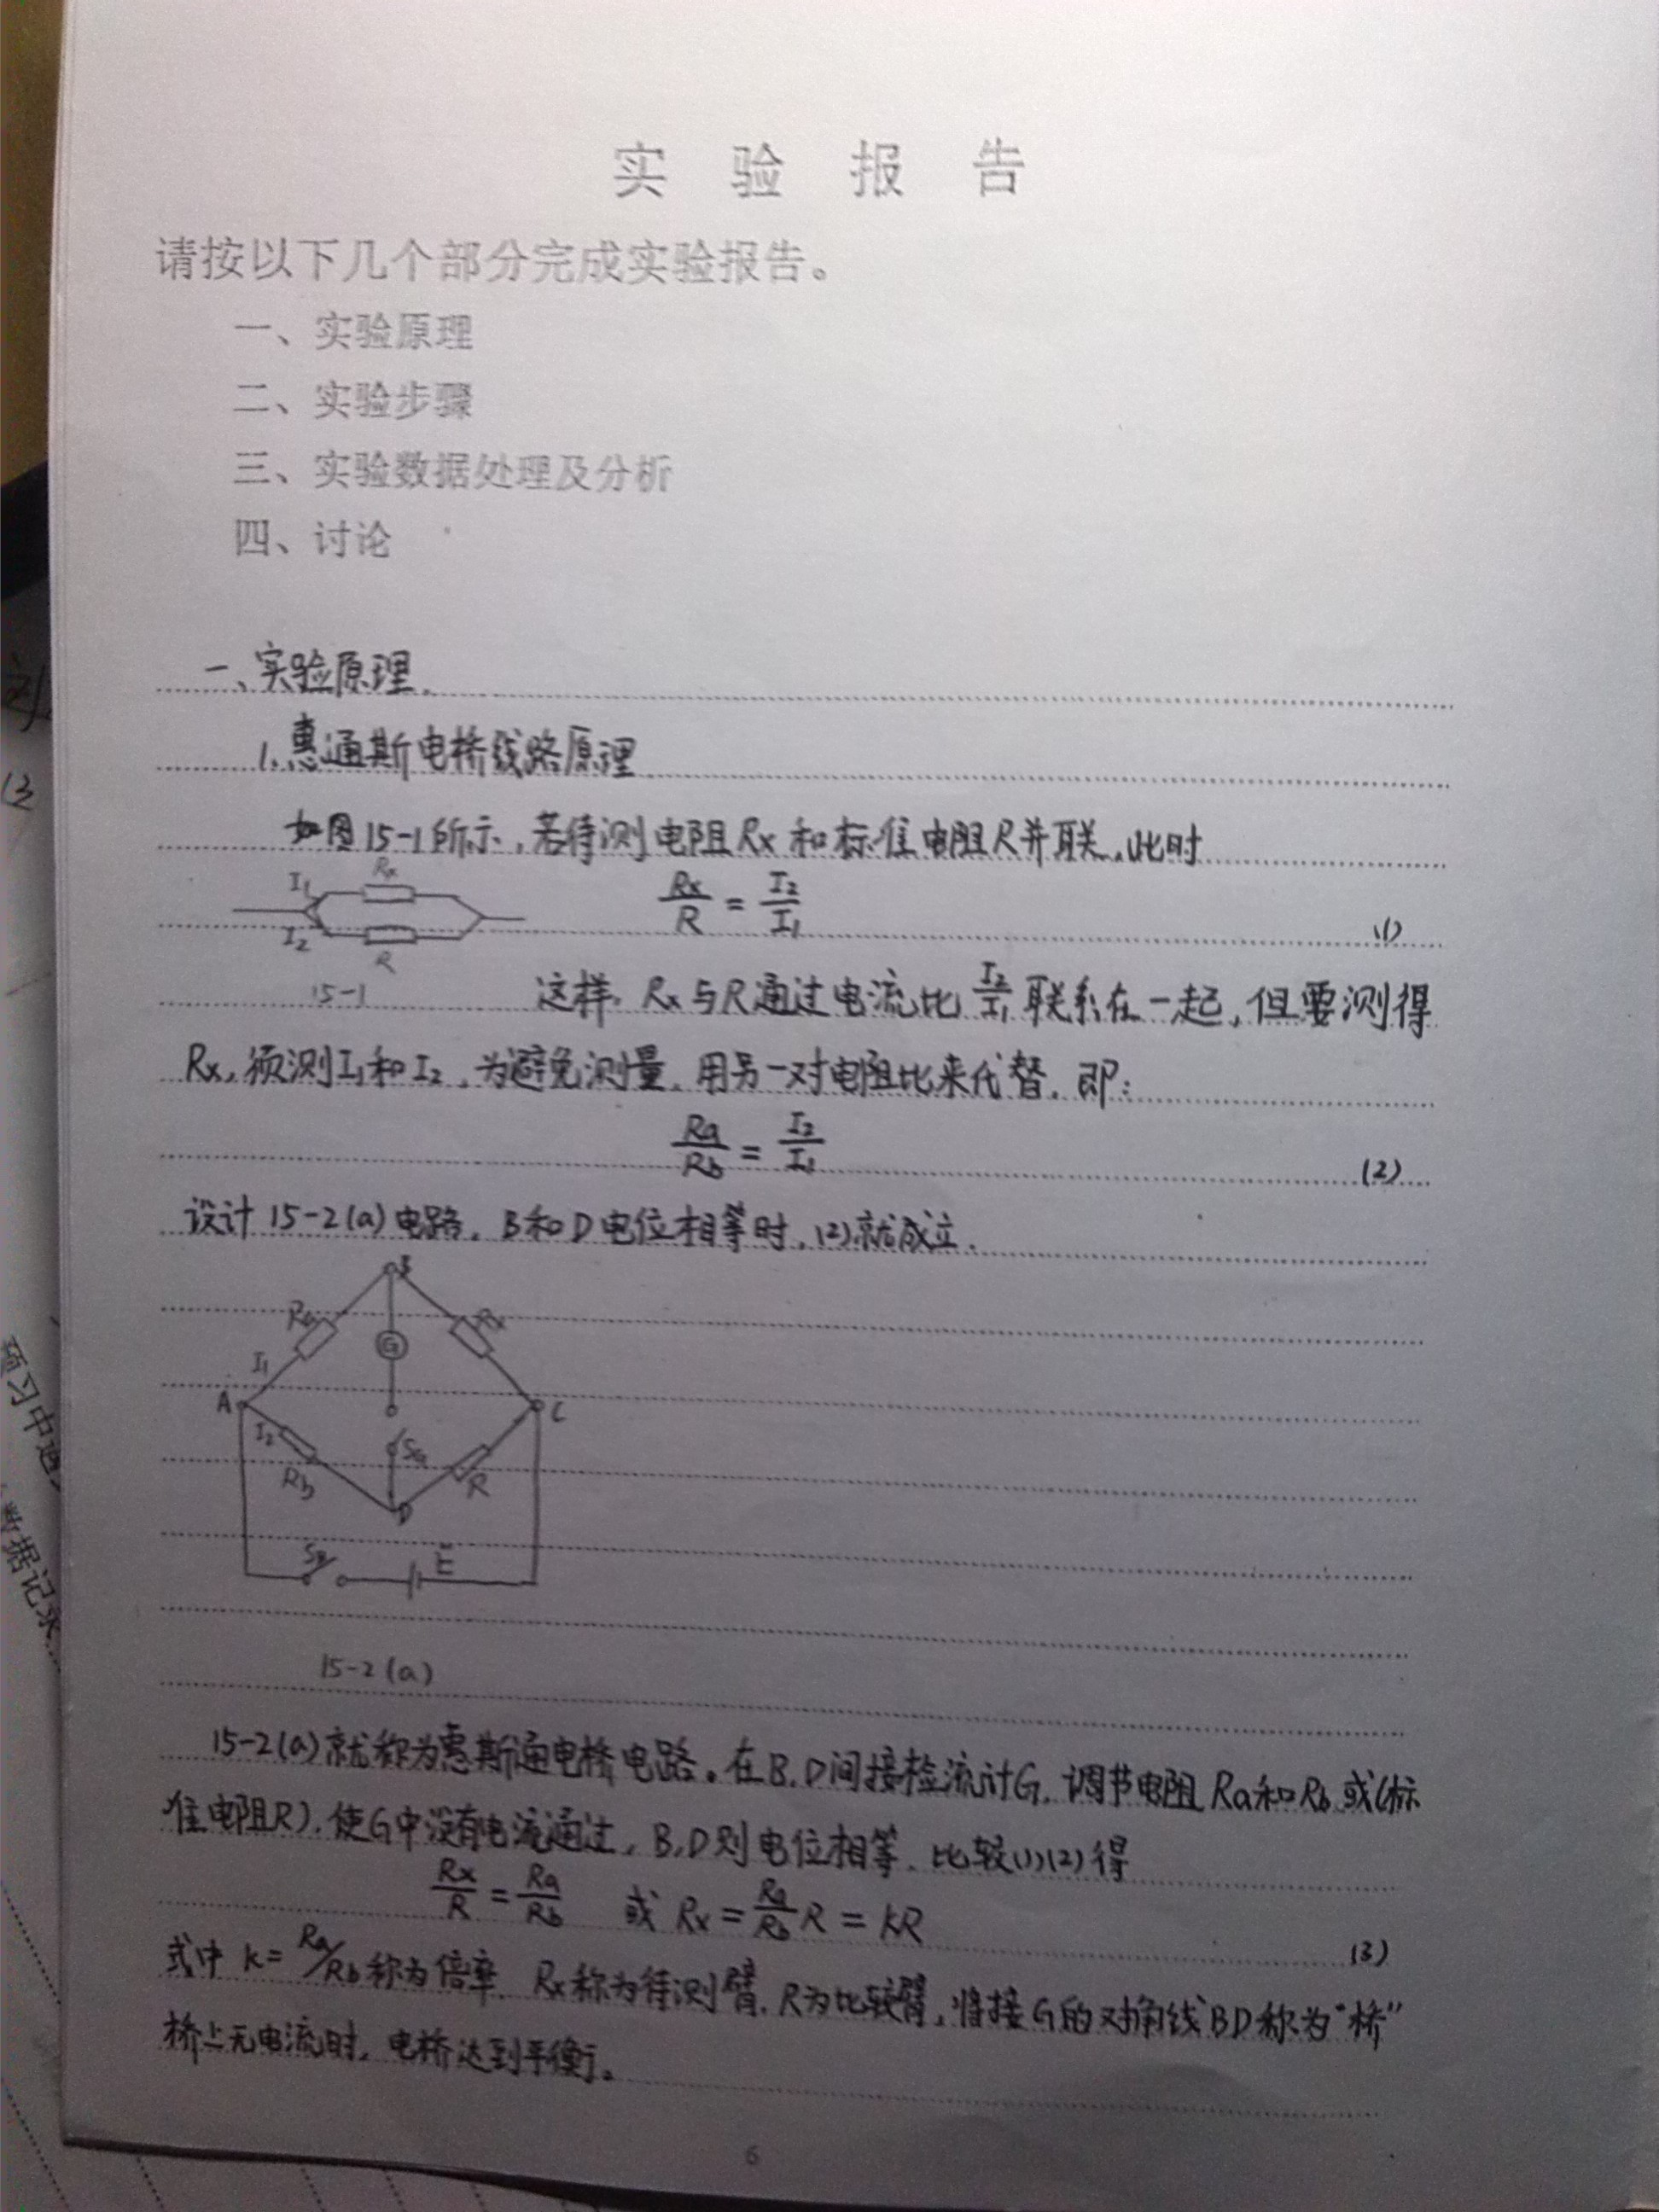 实 验 报 告
请按以下几个部分完成实验报告。
一、实验原理
二、实验步骤
三、实验数据处理及分析
四、讨论
一、实验原理.
1.惠通斯电桥线路原理
如图15-1所示,若待测电阻Rx和标准电阻R并联,此时
I₁ Rx
I₂ R
Rx/R = I₂/I₁ (1)
15-1
这样,Rx与R通过电流比I₂/I₁联系在一起,但要测得
Rx,须测I₁和I₂,为避免测量,用另一对电阻比来代替,即:
Ra/Rb = I₂/I₁ (2)
设计15-2(a)电路,B和D电位相等时,(2)就成立.
B
Ra G Rx
I₁
A C
I₂ SG
Rb R
D
E
15-2(a)
15-2(a)就称为惠斯通电桥电路。在B,D间接检流计G,调节电阻Ra和Rb或(标
准电阻R),使G中没有电流通过,B,D则电位相等,比较(1)(2)得
Rx/R = Ra/Rb 或 Rx = Ra/Rb R = kR (3)
式中 k= Ra/Rb 称为倍率,Rx称为待测臂,R为比较臂,将接G的对角线BD称为“桥”
桥上无电流时,电桥达到平衡。
6
预习中遇
数据记录